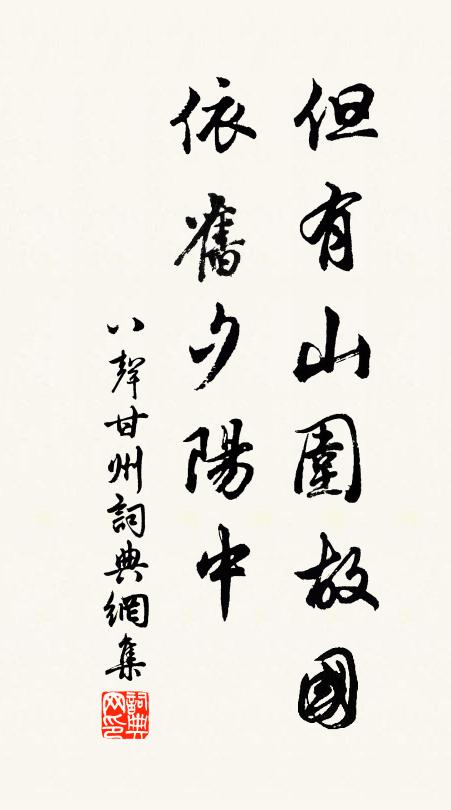 但有山圍故國
依舊夕陽中
八聲甘州詞典網集
詞典網印